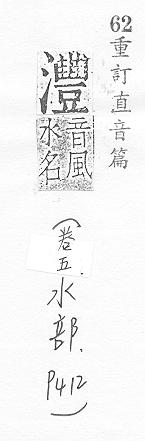 62重訂直音篇
灃
音風
水名
（卷五．水部．P412）